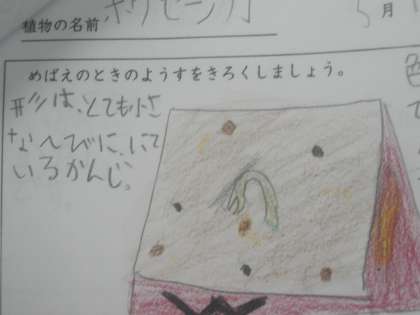 植物の名前 ホウセンカ
5月
めばえのときのようすをきろくしましょう。
形は、とても小さ
なヘびに、にて
いるかんじ。
色